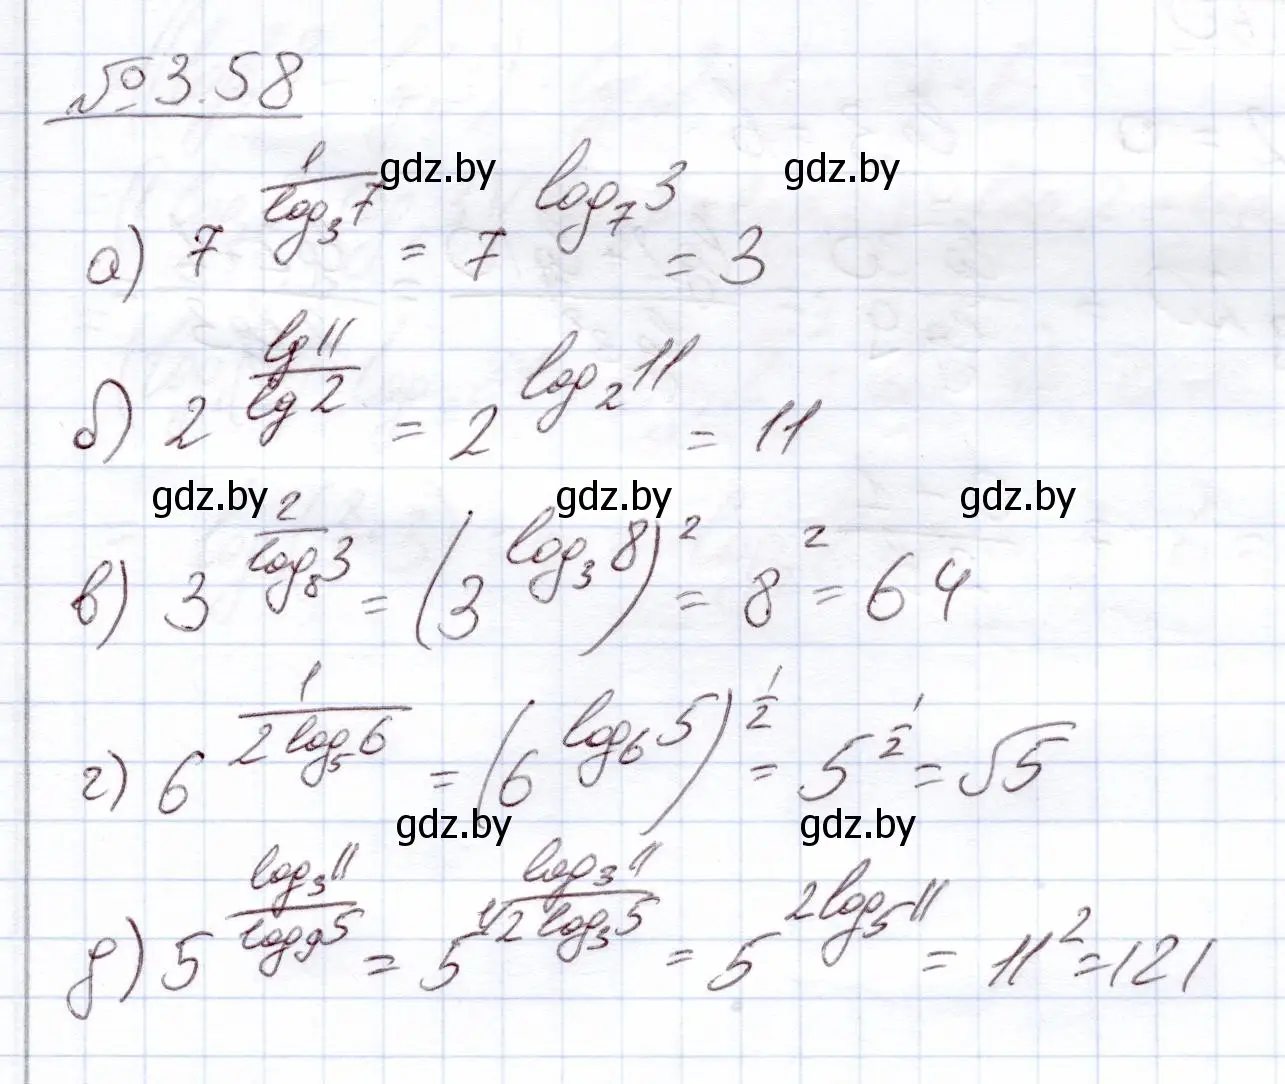 №3.58
gdz.by gdz.by
а) 7^(1/(log₃7)) = 7^(log₇3) = 3
б) 2^((lg11)/(lg2)) = 2^(log₂11) = 11
gdz.by gdz.by gdz.by
в) 3^(2/(log₈3)) = (3^(log₃8))² = 8² = 64
г) 6^(1/(2log₅6)) = (6^(log₆5))^(1/2) = 5^(1/2) = √5
gdz.by gdz.by
д) 5^((log₃11)/(log₉5)) = 5^((log₃11)/(1/2 log₃5)) = 5^(2log₅11) = 11² = 121